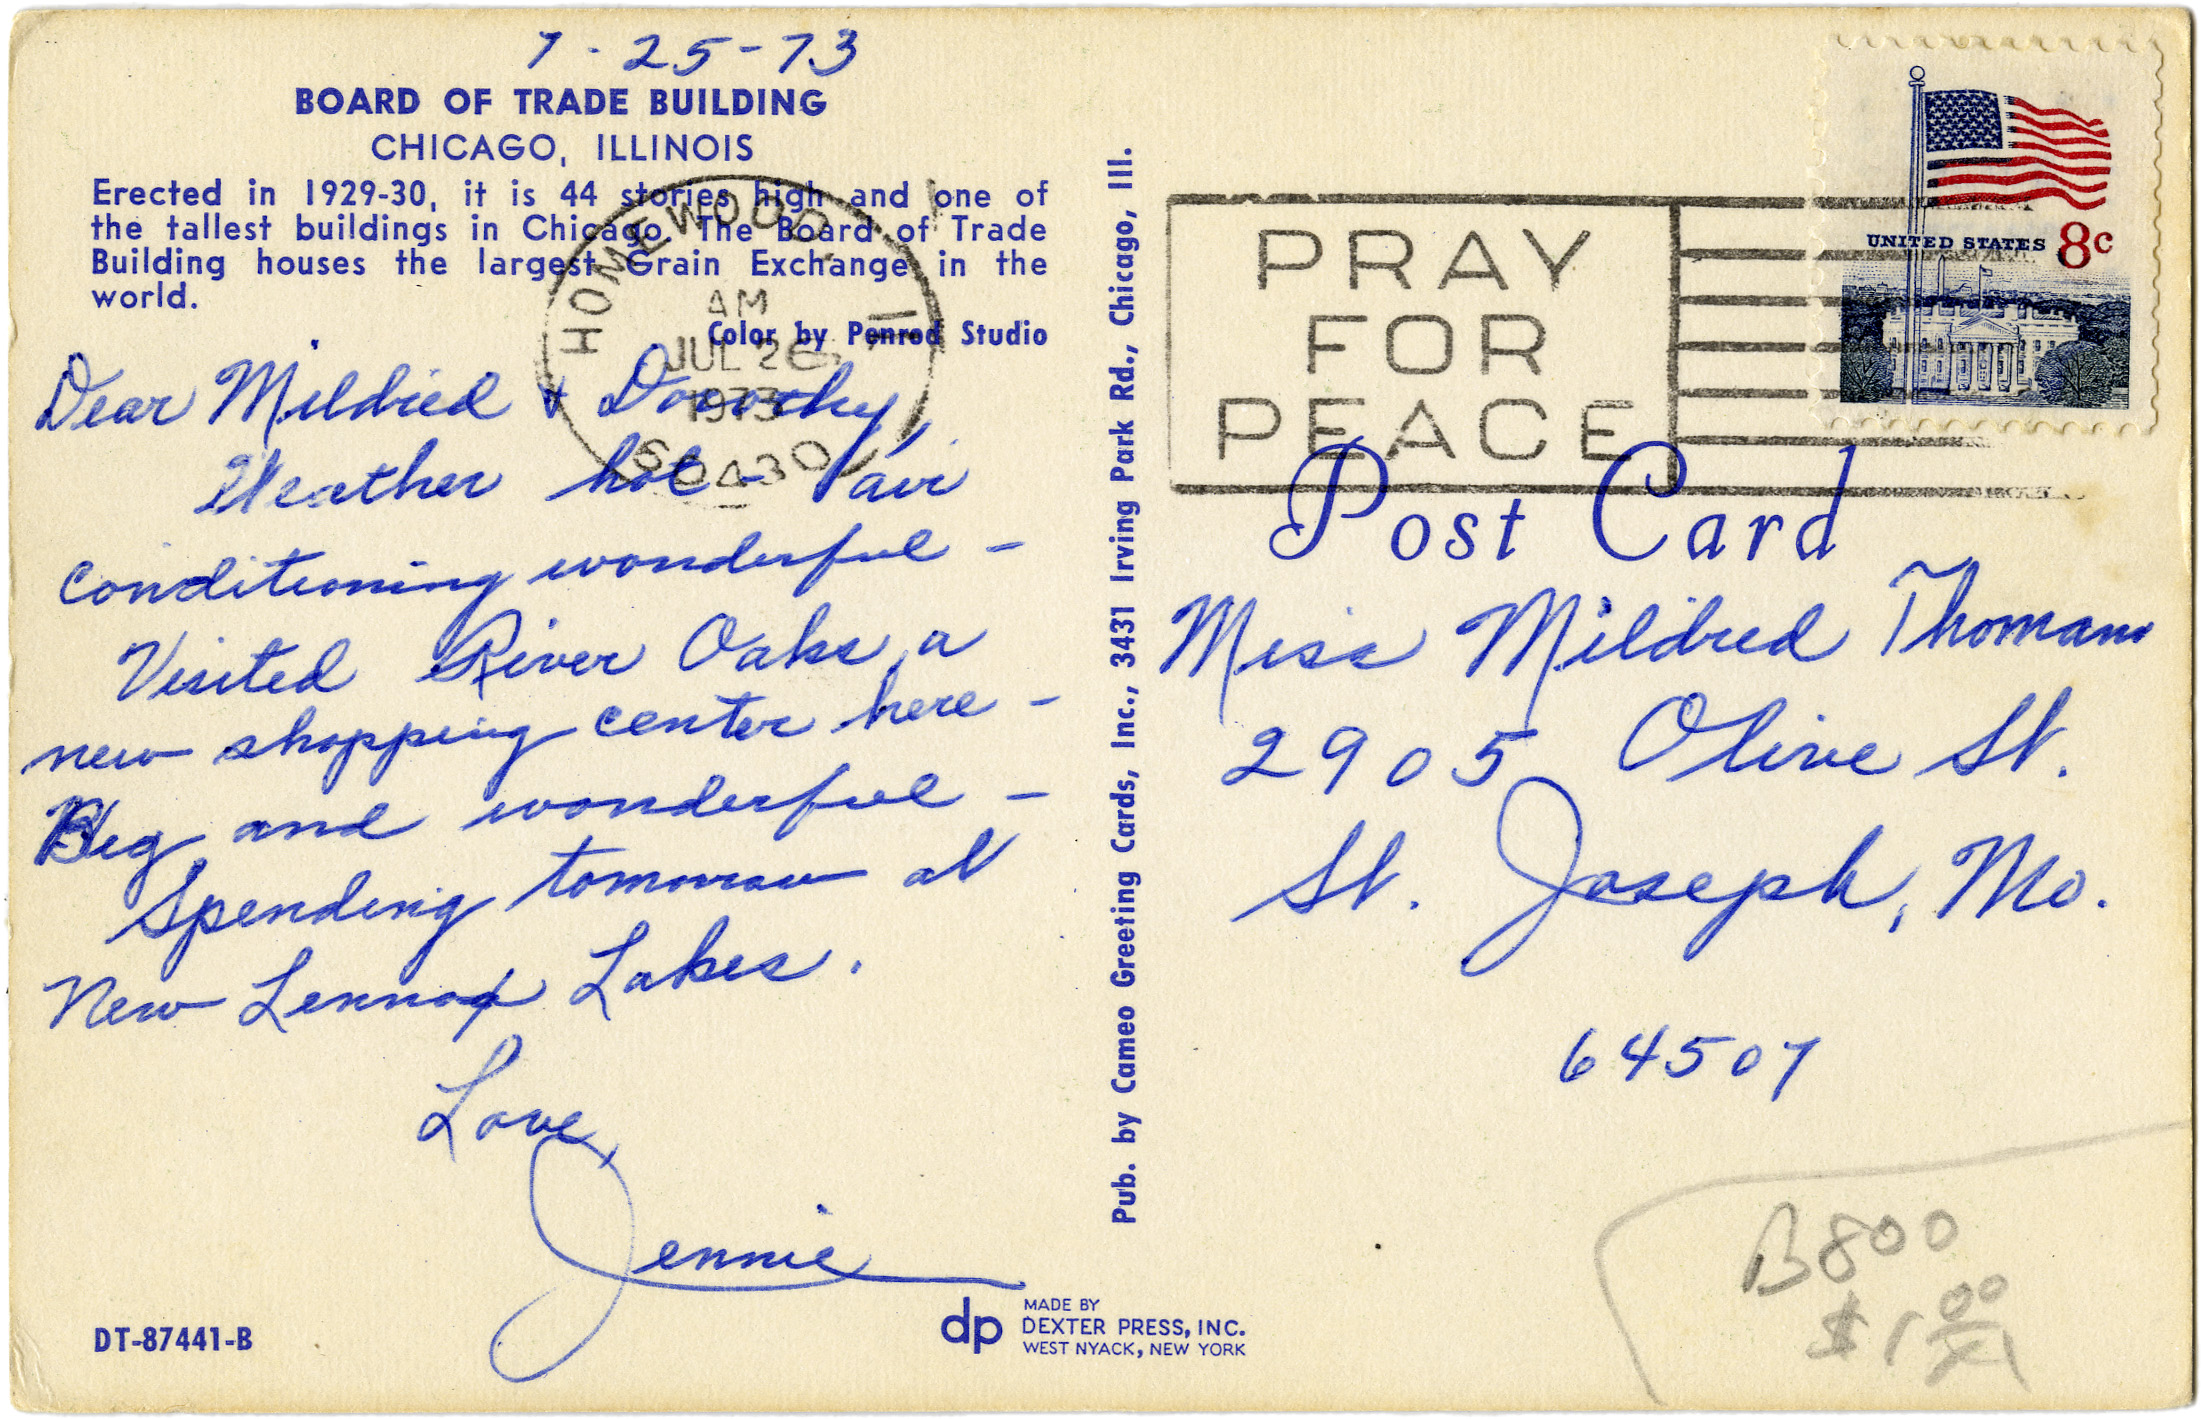 7-25-73
BOARD OF TRADE BUILDING
CHICAGO, ILLINOIS
Erected in 1929-30, it is 44 stories high and one of
the tallest buildings in Chicago. The Board of Trade
Building houses the largest Grain Exchange in the
world.
Color by Penrod Studio
Dear Mildred & Dorothy,
Weather hot - air
conditioning wonderful -
Visited River Oaks, a
new shopping center here -
Big and wonderful -
Spending tomorrow at
New Lennox Lakes.
Love,
Jennie
DT-87441-B
dp
MADE BY
DEXTER PRESS, INC.
WEST NYACK, NEW YORK
Pub. by Cameo Greeting Cards, Inc., 3431 Irving Park Rd., Chicago, Ill.
HOMEWOOD, IL
AM
JUL 26
1973
60430
PRAY
FOR
PEACE
UNITED STATES 8c
Post Card
Miss Mildred Thomann
2905 Olive St.
St. Joseph, Mo.
64507
B800
$1.00